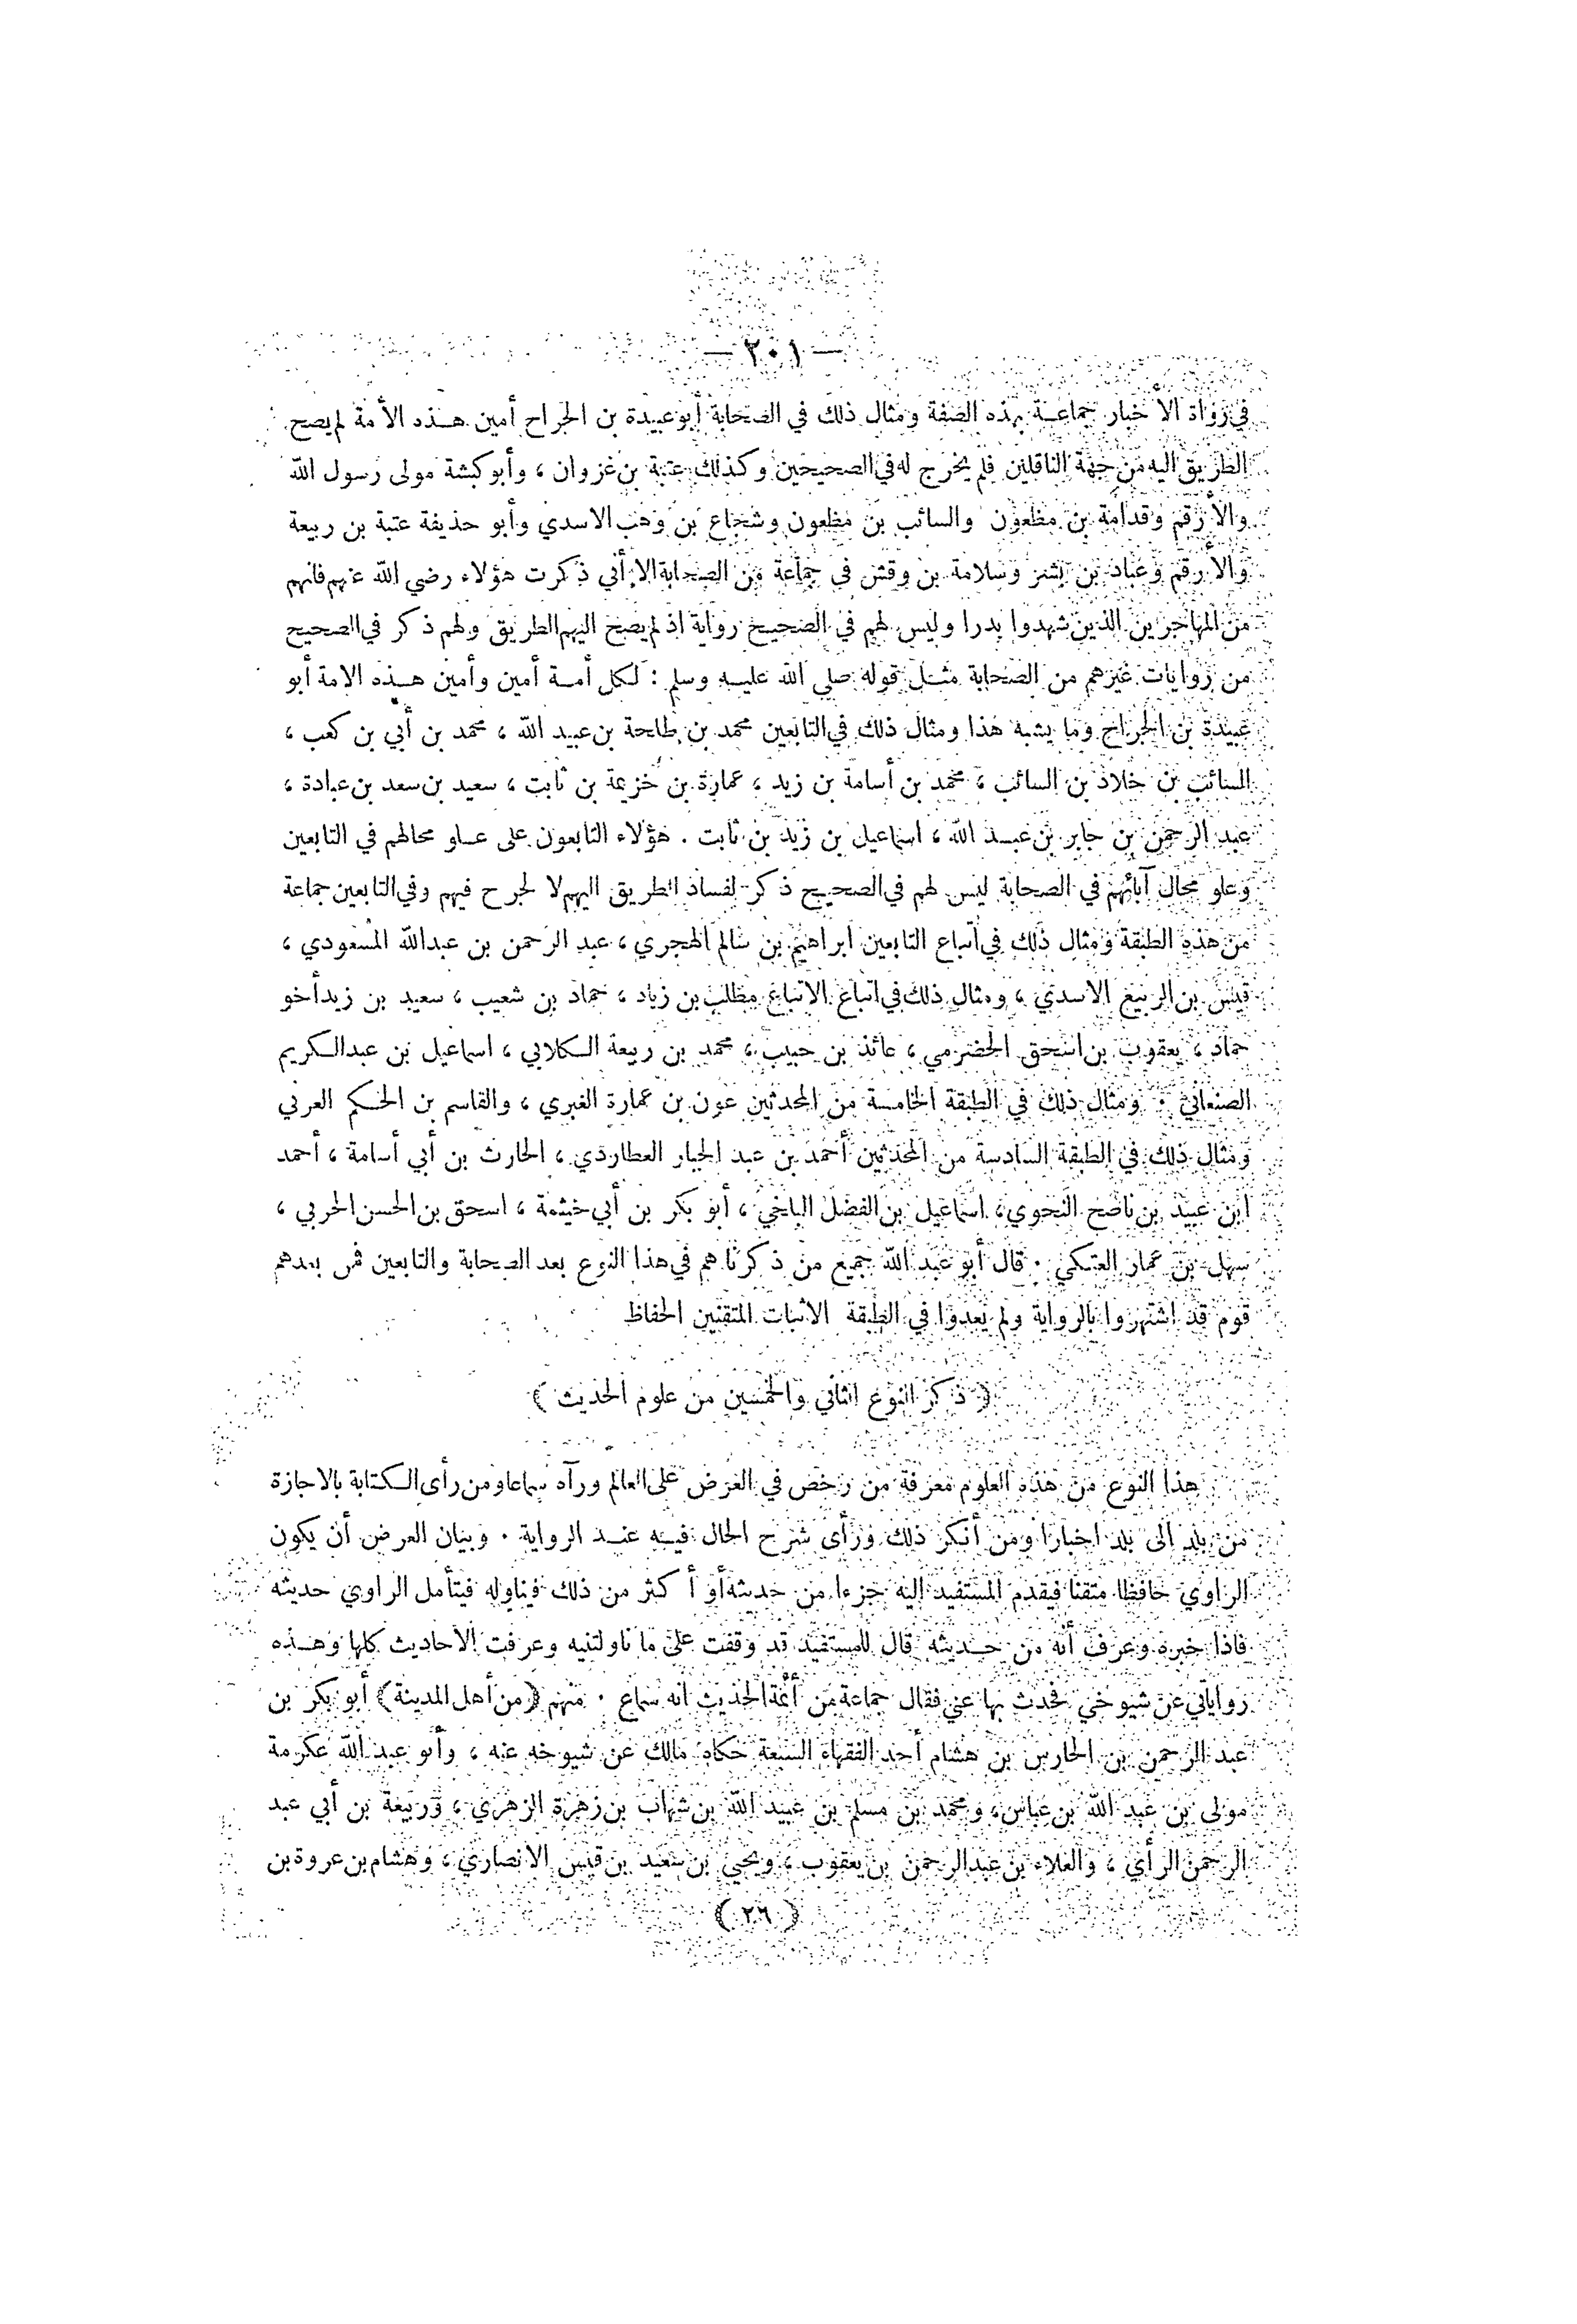 — ٢٠١ —
في رواة الأخبار جماعة بهذه الصفة ومثال ذلك في الصحابة أبو عبيدة بن الجراح أمين هذه الأمة لم يصح
الطريق اليه من جهة الناقلين فلم يخرج له في الصحيحين وكذلك عتبة بن غزوان ، وأبو كبشة مولى رسول الله
والأرقم وقدامة بن مظعون والسائب بن مظعون وشجاع بن وهب الاسدي وأبو حذيفة عتبة بن ربيعة
والأرقم وعباد بن بشر وسلامة بن وقش في جماعة من الصحابة الا أني ذكرت هؤلاء رضي الله عنهم فانهم
من المهاجرين الذين شهدوا بدرا وليس لهم في الصحيح رواية اذ لم يصح اليهم الطريق ولهم ذكر في الصحيح
من روايات غيرهم من الصحابة مثل قوله صلى الله عليه وسلم : لكل أمة أمين وأمين هذه الامة أبو
عبيدة بن الجراح وما يشبه هذا ومثال ذلك في التابعين محمد بن طلحة بن عبيد الله ، محمد بن أبي بن كعب ،
السائب بن خلاد بن السائب ، محمد بن أسامة بن زيد ، عمارة بن خزيمة بن ثابت ، سعيد بن سعد بن عبادة ،
عبد الرحمن بن جابر بن عبد الله ، اسماعيل بن زيد بن ثابت . هؤلاء التابعون على علو محالهم في التابعين
وعلو محال آبائهم في الصحابة ليس لهم في الصحيح ذكر لفساد الطريق اليهم لا لجرح فيهم وفي التابعين جماعة
من هذه الطبقة ومثال ذلك في أتباع التابعين ابراهيم بن سالم الهجري ، عبد الرحمن بن عبدالله المسعودي ،
قيس بن الربيع الاسدي ، ومثال ذلك في اتباع الاتباع مطلب بن زياد ، حماد بن شعيب ، سعيد بن زيد أخو
حماد ، يعقوب بن اسحق الحضرمي ، عائذ بن حبيب ، محمد بن ربيعة الكلابي ، اسماعيل بن عبدالكريم
الصنعاني . ومثال ذلك في الطبقة الخامسة من المحدثين عون بن عمارة الغبري ، والقاسم بن الحكم العرني
ومثال ذلك في الطبقة السادسة من المحدثين أحمد بن عبد الجبار العطاردي ، الحارث بن أبي أسامة ، أحمد
ابن عبيد بن ناصح النحوي ، اسماعيل بن الفضل البلخي ، أبو بكر بن أبي خيثمة ، اسحق بن الحسن الحربي ،
سهل بن عمار العتكي . قال أبو عبد الله جميع من ذكرناهم في هذا النوع بعد الصحابة والتابعين فمن بعدهم
قوم قد اشتهروا بالرواية ولم يعدوا في الطبقة الاثبات المتقنين الحفاظ
( ذكر النوع الثاني والخمسين من علوم الحديث )
هذا النوع من هذه العلوم معرفة من رخص في العرض على العالم ورآه سماعا ومن رأى الكتابة بالاجازة
من بلد الى بلد اخبارا ومن أنكر ذلك ورأى شرح الحال فيه عند الرواية . وبيان العرض أن يكون
الراوي حافظا متقنا فيقدم المستفيد اليه جزءا من حديثه أو أكثر من ذلك فيناوله فيتأمل الراوي حديثه
فاذا خبره وعرف أنه من حديثه قال للمستفيد قد وقفت على ما ناولتنيه وعرفت الاحاديث كلها وهذه
رواياتي عن شيوخي فحدث بها عني فقال جماعة من أئمة الحديث انه سماع . منهم (من أهل المدينة) أبو بكر بن
عبد الرحمن بن الحارس بن هشام أحد الفقهاء السبعة حكاه مالك عن شيوخه عنه ، وأبو عبد الله عكرمة
مولى بن عبد الله بن عباس ، ومحمد بن مسلم بن عبيد الله بن شهاب بن زهرة الزهري ، وربيعة بن أبي عبد
الرحمن الرأي ، والعلاء بن عبدالرحمن بن يعقوب ، ويحيى بن سعيد بن قيس الانصاري ، وهشام بن عروة بن
( ٢٦ )